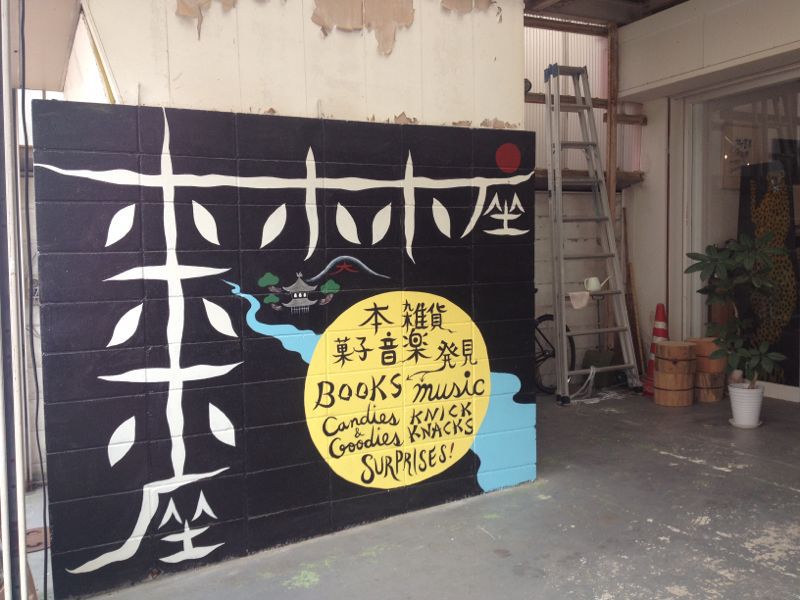 ホホホ座
ホホホ座
本 雑貨
菓子 音楽 発見
BOOKS music
Candies
&
Goodies
KNICK
KNACKS
SURPRISES!